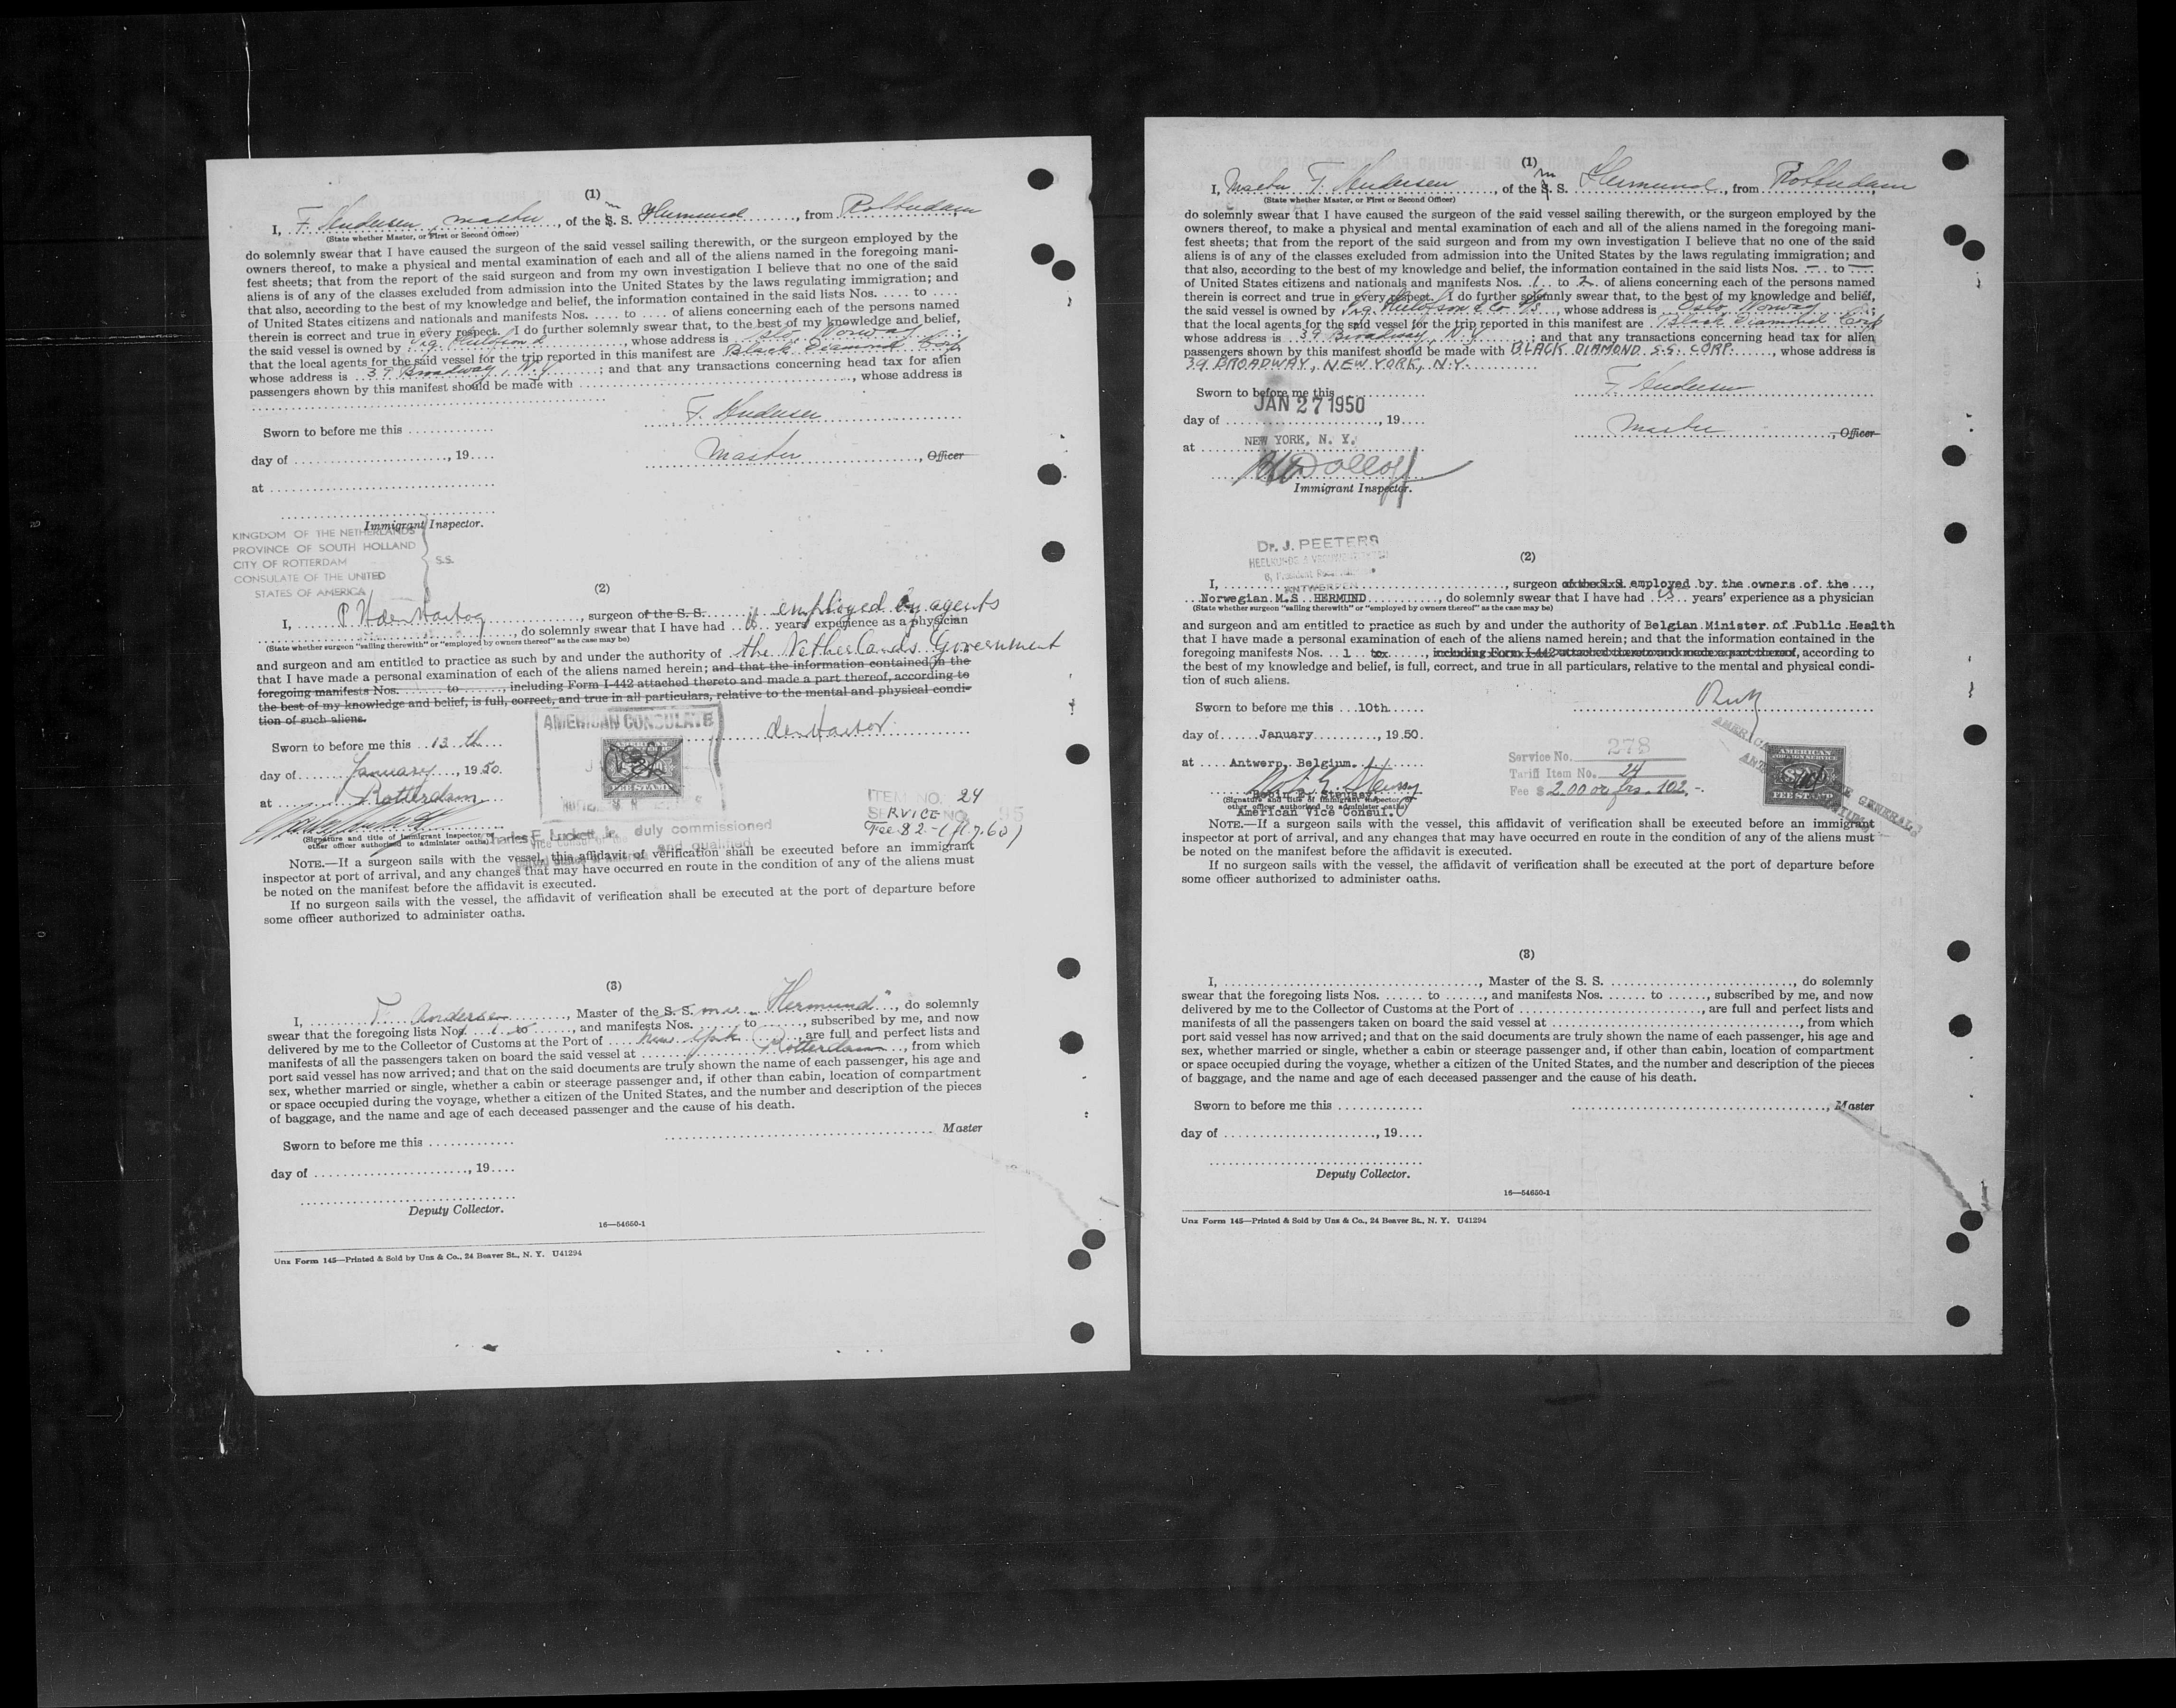 (1)
I, F. Andersen, master, of the S. S. Hermund, from Rotterdam
(State whether Master, or First or Second Officer)
do solemnly swear that I have caused the surgeon of the said vessel sailing therewith, or the surgeon employed by the
owners thereof, to make a physical and mental examination of each and all of the aliens named in the foregoing mani-
fest sheets; that from the report of the said surgeon and from my own investigation I believe that no one of the said
aliens is of any of the classes excluded from admission into the United States by the laws regulating immigration; and
that also, according to the best of my knowledge and belief, the information contained in the said lists Nos. .... to ....
of United States citizens and nationals and manifests Nos. .... to .... of aliens concerning each of the persons named
therein is correct and true in every respect. I do further solemnly swear that, to the best of my knowledge and belief,
the said vessel is owned by, whose address is Oslo Norway;
that the local agents for the said vessel for the trip reported in this manifest are Black Diamond Corp
whose address is 39 Broadway, N.Y; and that any transactions concerning head tax for alien
passengers shown by this manifest should be made with, whose address is
F. Andersen
Sworn to before me this
day of, 19.... Master, Officer
at
Immigrant Inspector.
KINGDOM OF THE NETHERLANDS
PROVINCE OF SOUTH HOLLAND
CITY OF ROTTERDAM S.S.
CONSULATE OF THE UNITED
STATES OF AMERICA
(2)
I, den Hartog, surgeon of the S. S. employed by agents
do solemnly swear that I have had years' experience as a physician
(State whether surgeon "sailing therewith" or "employed by owners thereof" as the case may be)
and surgeon and am entitled to practice as such by and under the authority of the Netherlands Government
that I have made a personal examination of each of the aliens named herein; and that the information contained in the
foregoing manifests Nos. to, including Form I-442 attached thereto and made a part thereof, according to
the best of my knowledge and belief, is full, correct, and true in all particulars, relative to the mental and physical condi-
tion of such aliens.
AMERICAN CONSULATE
den Hartog
Sworn to before me this 13 th
day of January, 1950.
FEE STAMP
at Rotterdam
ITEM NO. 24
SERVICE NO. 95
Fee $2 - (fl. 7.60)
(Signature and title of immigrant inspector or
other officer authorized to administer oaths)
Charles E. Luckett, Jr. duly commissioned
and qualified
NOTE.—If a surgeon sails with the vessel, this affidavit of verification shall be executed before an immigrant
inspector at port of arrival, and any changes that may have occurred en route in the condition of any of the aliens must
be noted on the manifest before the affidavit is executed.
If no surgeon sails with the vessel, the affidavit of verification shall be executed at the port of departure before
some officer authorized to administer oaths.
(3)
I, F. Andersen, Master of the S. S. m.s. "Hermund", do solemnly
swear that the foregoing lists Nos. 1 to, and manifests Nos. to, subscribed by me, and now
delivered by me to the Collector of Customs at the Port of New York, are full and perfect lists and
manifests of all the passengers taken on board the said vessel at Rotterdam, from which
port said vessel has now arrived; and that on the said documents are truly shown the name of each passenger, his age and
sex, whether married or single, whether a cabin or steerage passenger and, if other than cabin, location of compartment
or space occupied during the voyage, whether a citizen of the United States, and the number and description of the pieces
of baggage, and the name and age of each deceased passenger and the cause of his death.
Sworn to before me this Master
day of, 19....
Deputy Collector.
16—54650-1
Unz Form 145—Printed & Sold by Unz & Co., 24 Beaver St., N. Y. U41294
(1)
I, Master F. Andersen, of the m S. Hermund, from Rotterdam
(State whether Master, or First or Second Officer)
do solemnly swear that I have caused the surgeon of the said vessel sailing therewith, or the surgeon employed by the
owners thereof, to make a physical and mental examination of each and all of the aliens named in the foregoing mani-
fest sheets; that from the report of the said surgeon and from my own investigation I believe that no one of the said
aliens is of any of the classes excluded from admission into the United States by the laws regulating immigration; and
that also, according to the best of my knowledge and belief, the information contained in the said lists Nos. — to —
of United States citizens and nationals and manifests Nos. 1 to 2 of aliens concerning each of the persons named
therein is correct and true in every respect. I do further solemnly swear that, to the best of my knowledge and belief,
the said vessel is owned by, whose address is Oslo Norway;
that the local agents for the said vessel for the trip reported in this manifest are Black Diamond Corp
whose address is 39 Broadway, N.Y; and that any transactions concerning head tax for alien
passengers shown by this manifest should be made with BLACK DIAMOND S.S. CORP., whose address is
39 BROADWAY, NEW YORK, N.Y.
Sworn to before me this F. Andersen
JAN 27 1950
day of, 19.... Master, Officer
NEW YORK, N. Y.
at
Immigrant Inspector.
Dr. J. PEETERS
ANTWERPEN
(2)
I,, surgeon of the S.S. employed by the owners of the
Norwegian M.S. HERMUND, do solemnly swear that I have had years' experience as a physician
(State whether surgeon "sailing therewith" or "employed by owners thereof" as the case may be)
and surgeon and am entitled to practice as such by and under the authority of Belgian Minister of Public Health
that I have made a personal examination of each of the aliens named herein; and that the information contained in the
foregoing manifests Nos. 1 to, including Form I-442 attached thereto and made a part thereof, according to
the best of my knowledge and belief, is full, correct, and true in all particulars, relative to the mental and physical condi-
tion of such aliens.
Sworn to before me this 10th
day of January, 1950.
at Antwerp, Belgium.
Service No. 278
Tariff Item No. 24
Fee $ 2.00 or frs. 102,-
AMERICAN
FOREIGN SERVICE
FEE STAMP
(Signature and title of immigrant inspector or
other officer authorized to administer oaths)
American Vice Consul.
NOTE.—If a surgeon sails with the vessel, this affidavit of verification shall be executed before an immigrant
inspector at port of arrival, and any changes that may have occurred en route in the condition of any of the aliens must
be noted on the manifest before the affidavit is executed.
If no surgeon sails with the vessel, the affidavit of verification shall be executed at the port of departure before
some officer authorized to administer oaths.
(3)
I,, Master of the S. S., do solemnly
swear that the foregoing lists Nos. ...... to ......, and manifests Nos. ...... to ......, subscribed by me, and now
delivered by me to the Collector of Customs at the Port of, are full and perfect lists and
manifests of all the passengers taken on board the said vessel at, from which
port said vessel has now arrived; and that on the said documents are truly shown the name of each passenger, his age and
sex, whether married or single, whether a cabin or steerage passenger and, if other than cabin, location of compartment
or space occupied during the voyage, whether a citizen of the United States, and the number and description of the pieces
of baggage, and the name and age of each deceased passenger and the cause of his death.
Sworn to before me this, Master
day of, 19....
Deputy Collector.
16—54650-1
Unz Form 145—Printed & Sold by Unz & Co., 24 Beaver St., N. Y. U41294